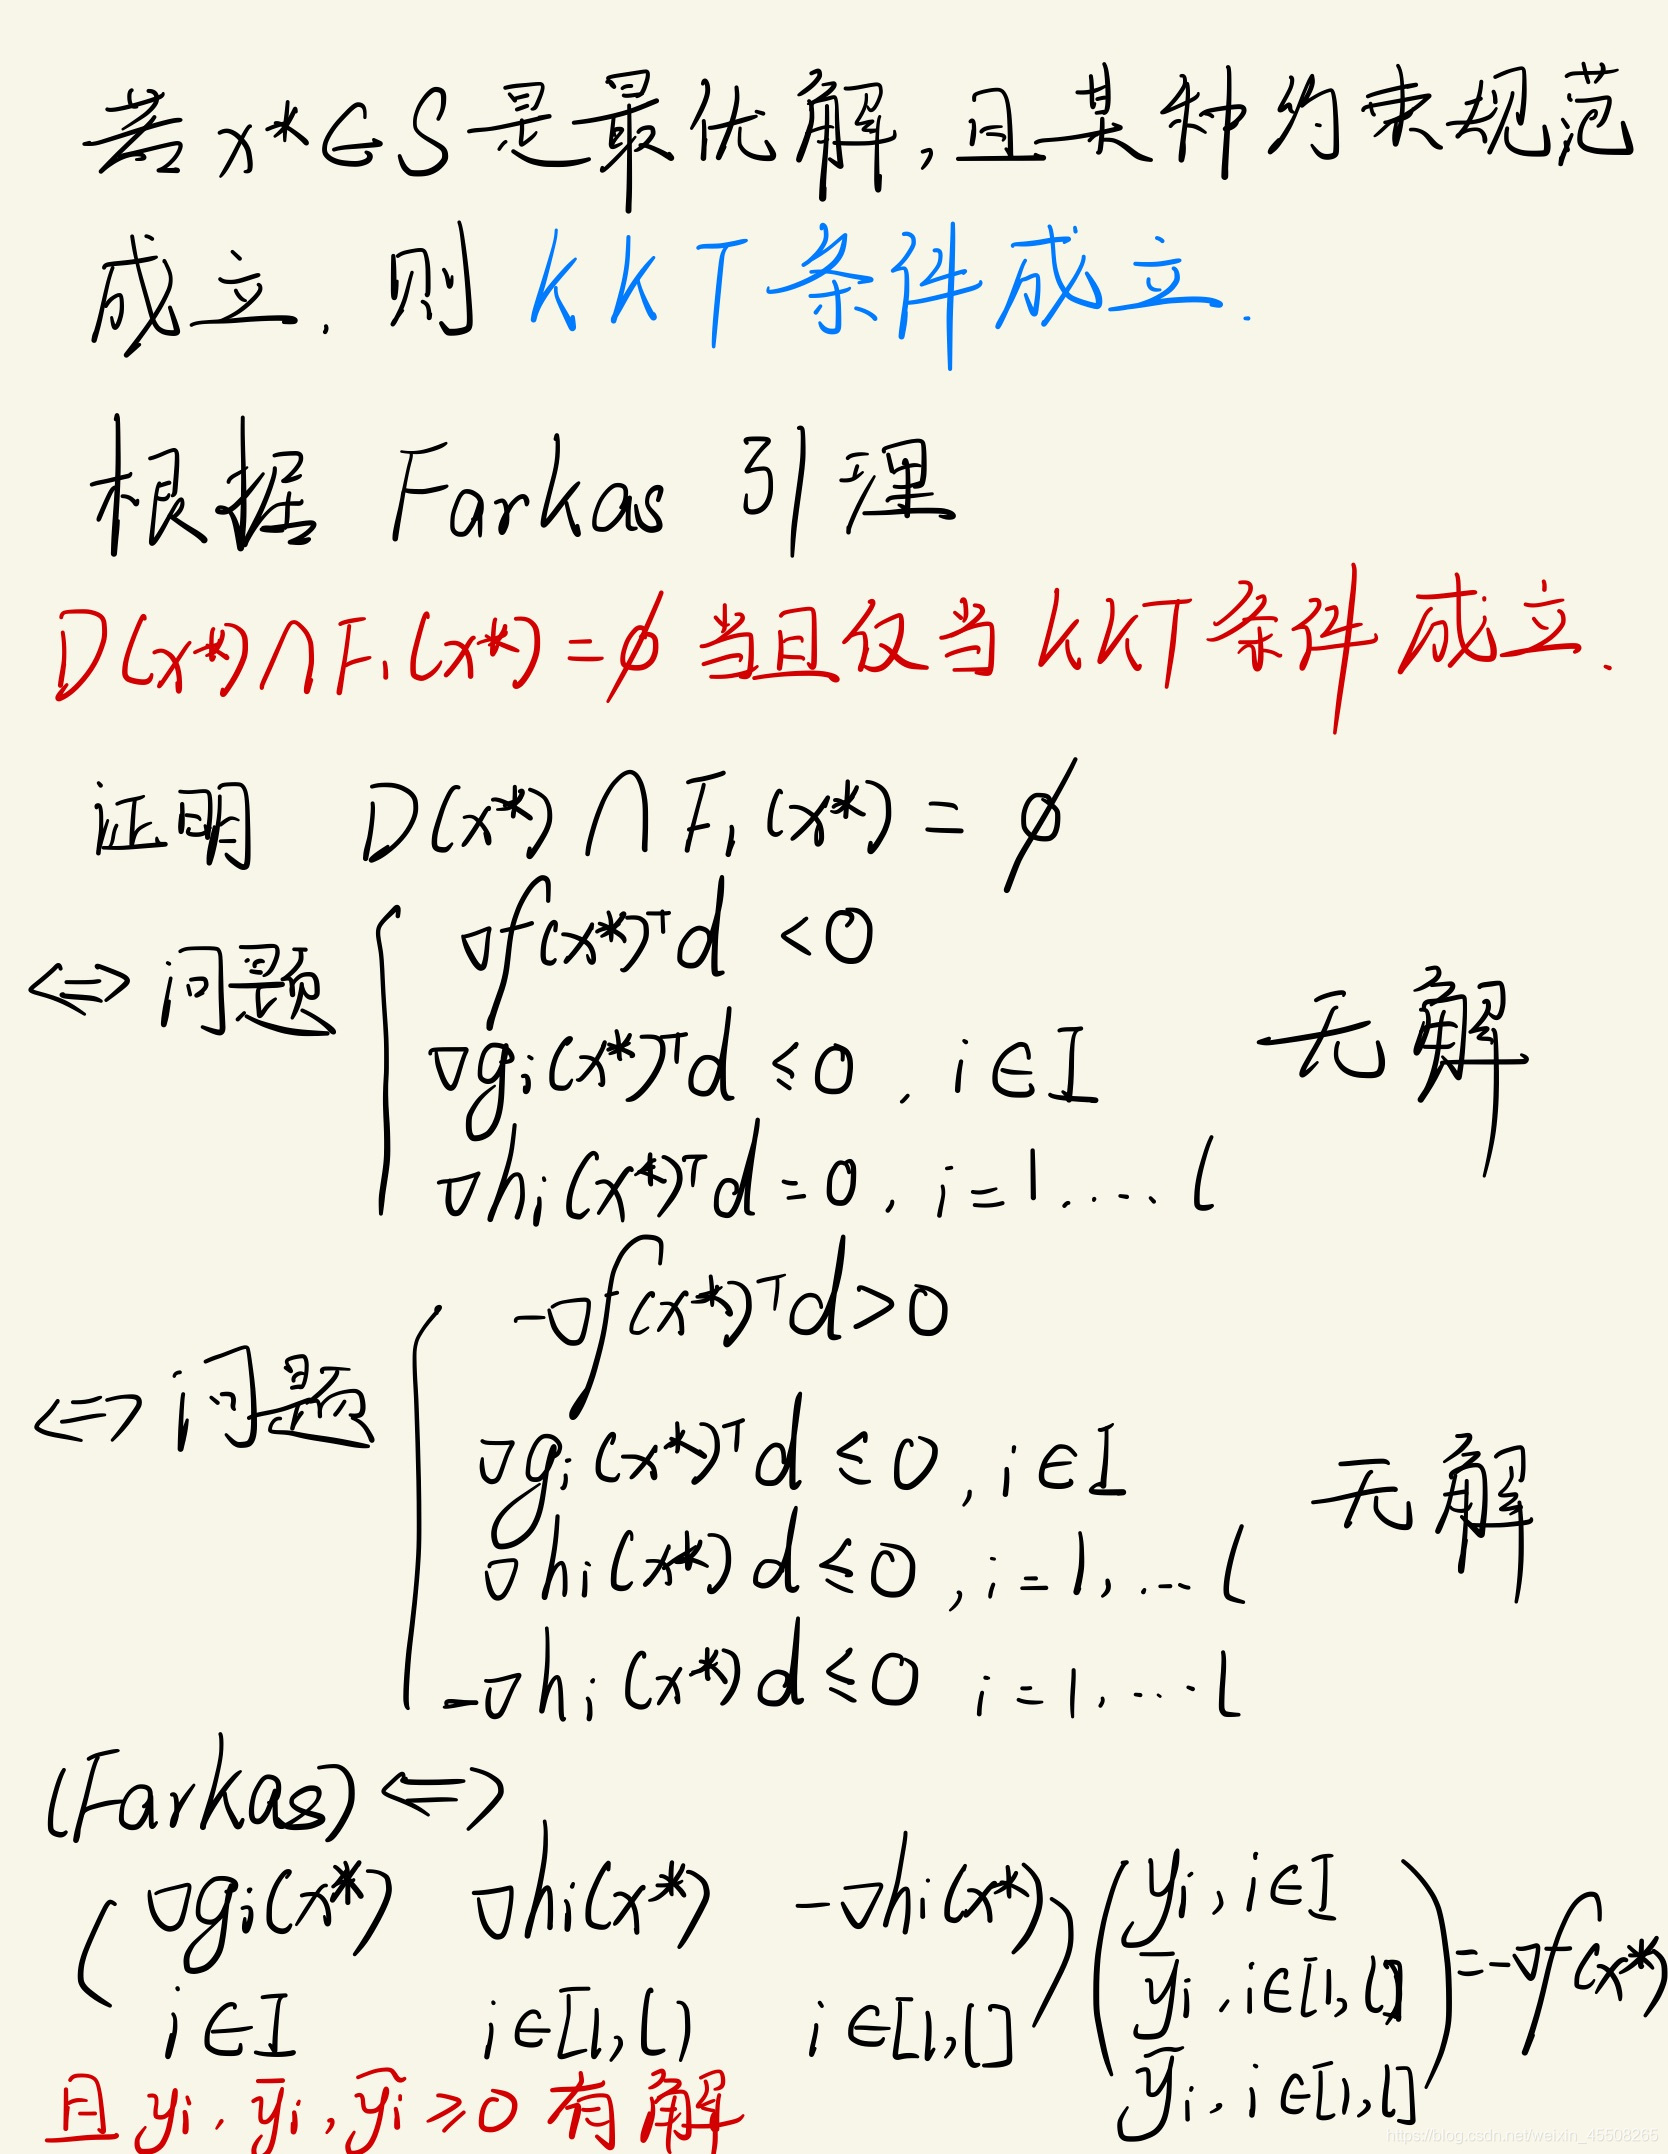 若 x* ∈ S 是最优解,且某种约束规范
成立,则 KKT 条件成立.
根据 Farkas 引理
D(x*) ∩ F₁(x*) = ∅ 当且仅当 KKT 条件成立.
证明 D(x*) ∩ F₁(x*) = ∅
⟺ 问题 { ∇f(x*)ᵀd < 0
∇gᵢ(x*)ᵀd ≤ 0, i ∈ I 无解
∇hᵢ(x*)ᵀd = 0, i = 1, ... l
⟺ 问题 { -∇f(x*)ᵀd > 0
∇gᵢ(x*)ᵀd ≤ 0, i ∈ I 无解
∇hᵢ(x*)d ≤ 0, i = 1, ... l
-∇hᵢ(x*)d ≤ 0 i = 1, ... l
(Farkas) ⟺
( ∇gᵢ(x*) ∇hᵢ(x*) -∇hᵢ(x*) ) ( yᵢ, i ∈ I
i ∈ I i ∈ [1, l) i ∈ [1, l] ȳᵢ, i ∈ [1, l] ) = -∇f(x*)
ỹᵢ, i ∈ [1, l]
且 yᵢ, ȳᵢ, ỹᵢ ≥ 0 有解
https://blog.csdn.net/weixin_45508265